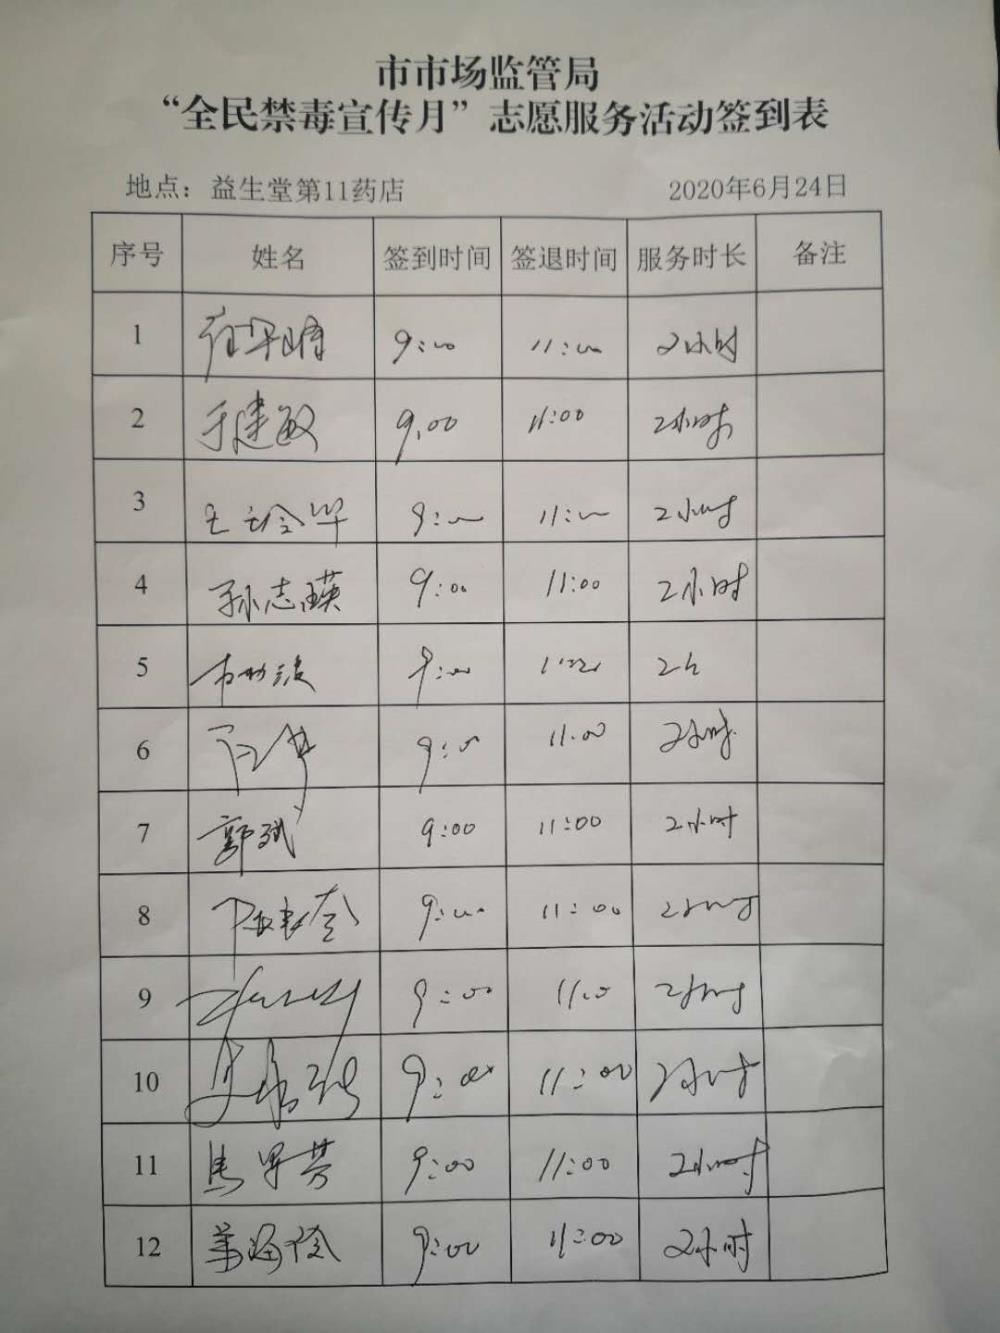 市市场监管局
“全民禁毒宣传月”志愿服务活动签到表
地点：益生堂第11药店 2020年6月24日
序号 姓名 签到时间 签退时间 服务时长 备注
1 9:00 11:00 2小时
2 于建敏 9:00 11:00 2小时
3 王玲华 9:00 11:00 2小时
4 孙志瑛 9:00 11:00 2小时
5 9:00 2h
6 9:00 11:00 2小时
7 郭斌 9:00 11:00 2小时
8 9:00 11:00 2小时
9 9:00 11:00 2小时
10 9:00 11:00 2小时
11 9:00 11:00 2小时
12 9:00 11:00 2小时